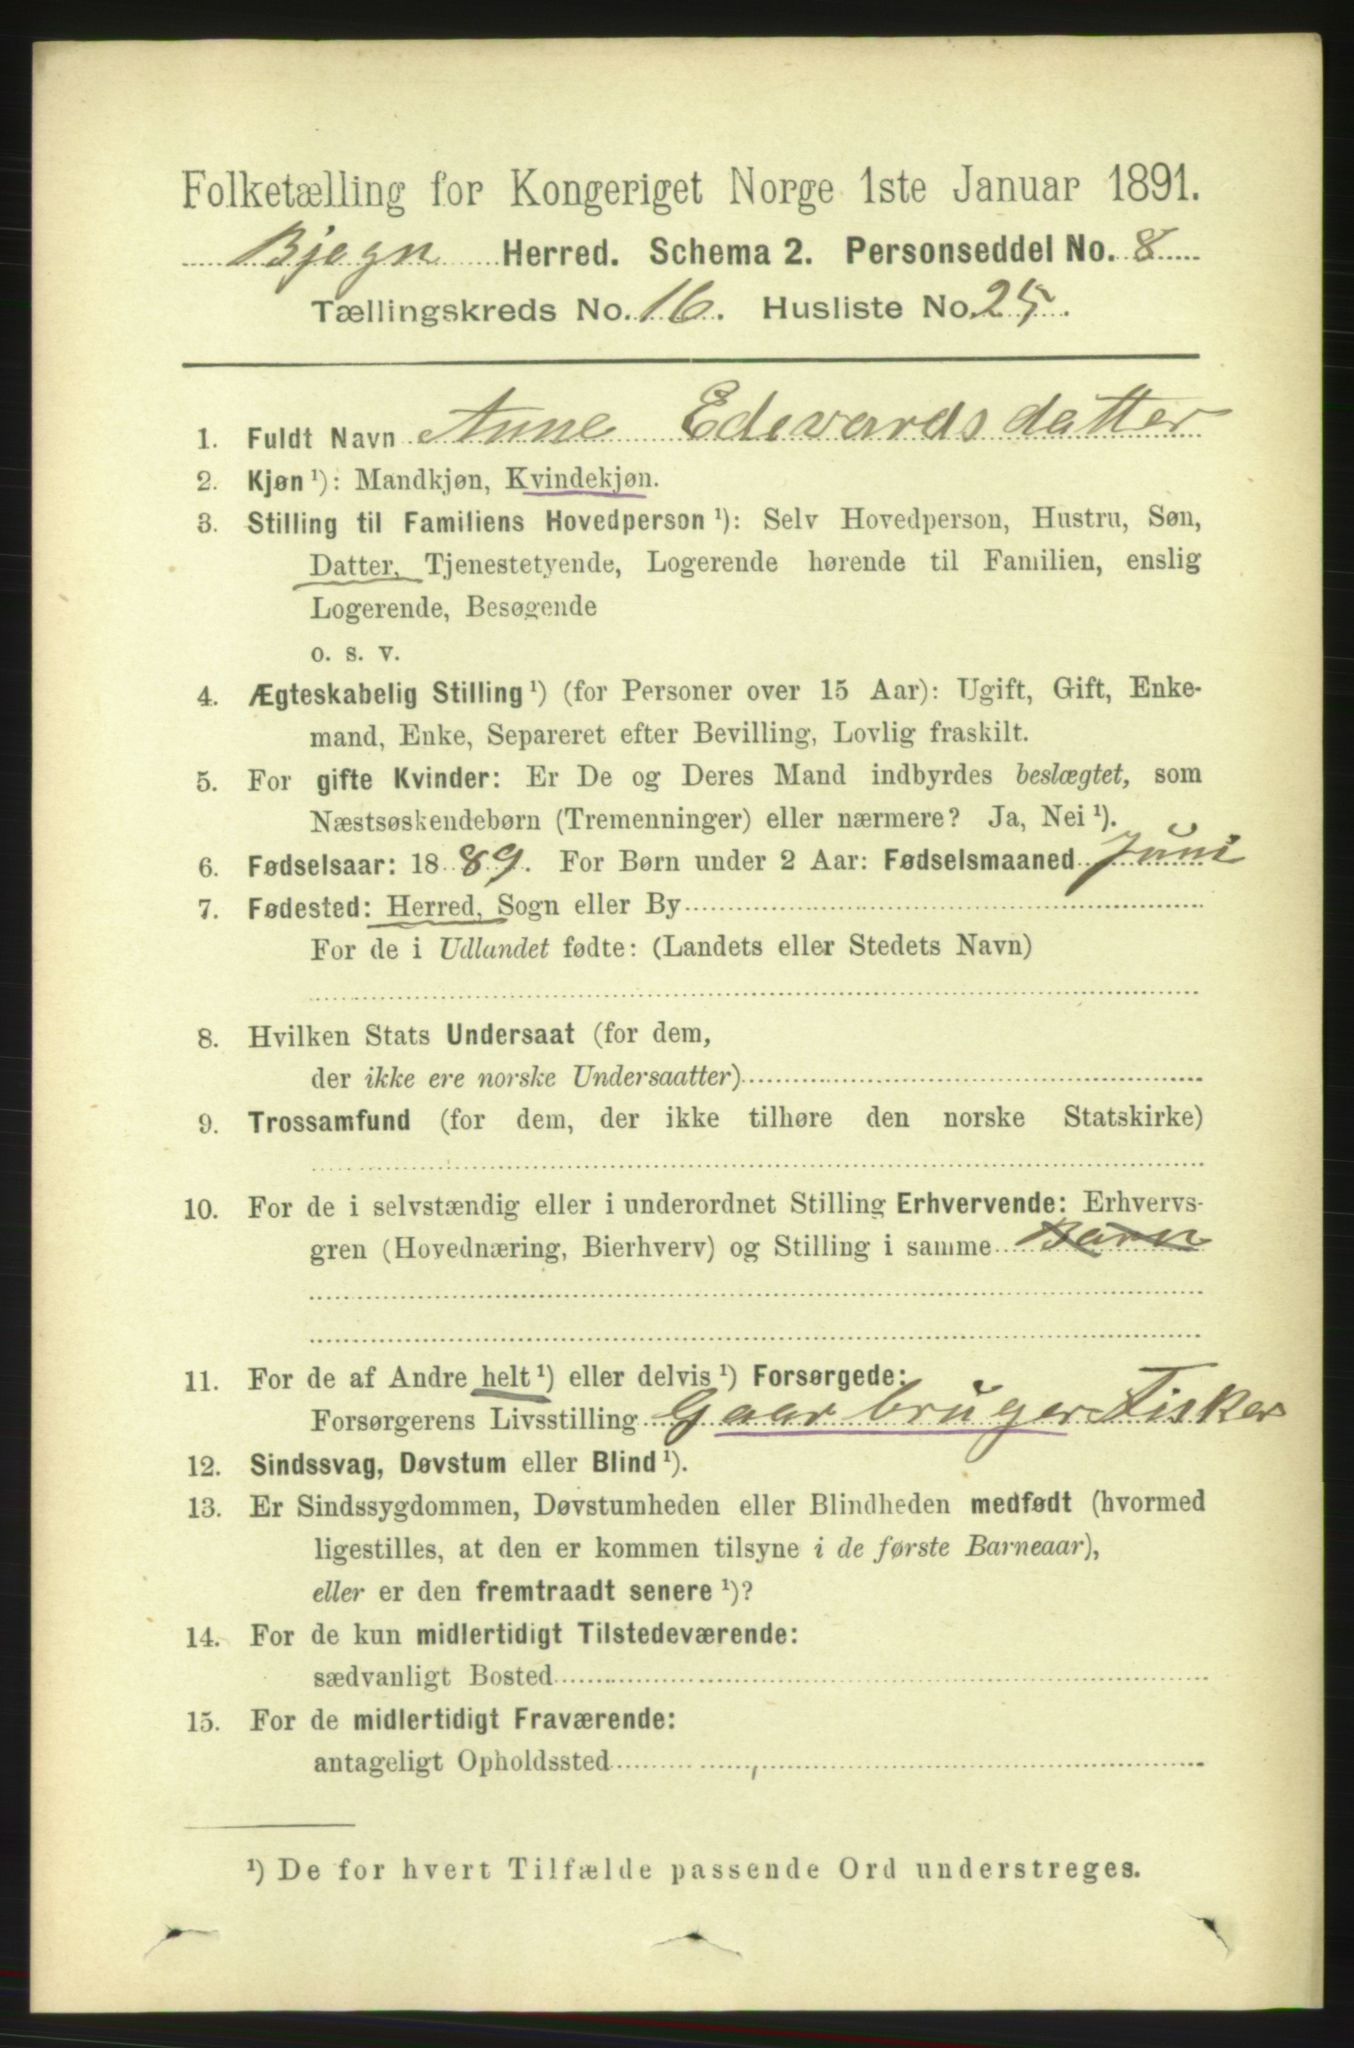 Folketælling for Kongeriget Norge 1ste Januar 1891.
Bjegn Herred. Schema 2. Personseddel No. 8
Tællingskreds No. 16. Husliste No. 25.
1. Fuldt Navn Anne Edevardsdatter
2. Kjøn ¹): Mandkjøn, Kvindekjøn.
3. Stilling til Familiens Hovedperson ¹): Selv Hovedperson, Hustru, Søn,
Datter, Tjenestetyende, Logerende hørende til Familien, enslig
Logerende, Besøgende
o. s. v.
4. Ægteskabelig Stilling ¹) (for Personer over 15 Aar): Ugift, Gift, Enke-
mand, Enke, Separeret efter Bevilling, Lovlig fraskilt.
5. For gifte Kvinder: Er De og Deres Mand indbyrdes beslægtet, som
Næstsøskendebørn (Tremenninger) eller nærmere? Ja, Nei ¹).
6. Fødselsaar: 1889. For Børn under 2 Aar: Fødselsmaaned Juni
7. Fødested: Herred, Sogn eller By
For de i Udlandet fødte: (Landets eller Stedets Navn)
8. Hvilken Stats Undersaat (for dem,
der ikke ere norske Undersaatter)
9. Trossamfund (for dem, der ikke tilhøre den norske Statskirke)
10. For de i selvstændig eller i underordnet Stilling Erhvervende: Erhvervs-
gren (Hovednæring, Bierhverv) og Stilling i samme Barn
11. For de af Andre helt ¹) eller delvis ¹) Forsørgede:
Forsørgerens Livsstilling Gaarbruger Fisker
12. Sindssvag, Døvstum eller Blind ¹).
13. Er Sindssygdommen, Døvstumheden eller Blindheden medfødt (hvormed
ligestilles, at den er kommen tilsyne i de første Barneaar),
eller er den fremtraadt senere ¹)?
14. For de kun midlertidigt Tilstedeværende:
sædvanligt Bosted
15. For de midlertidigt Fraværende:
antageligt Opholdssted
¹) De for hvert Tilfælde passende Ord understreges.